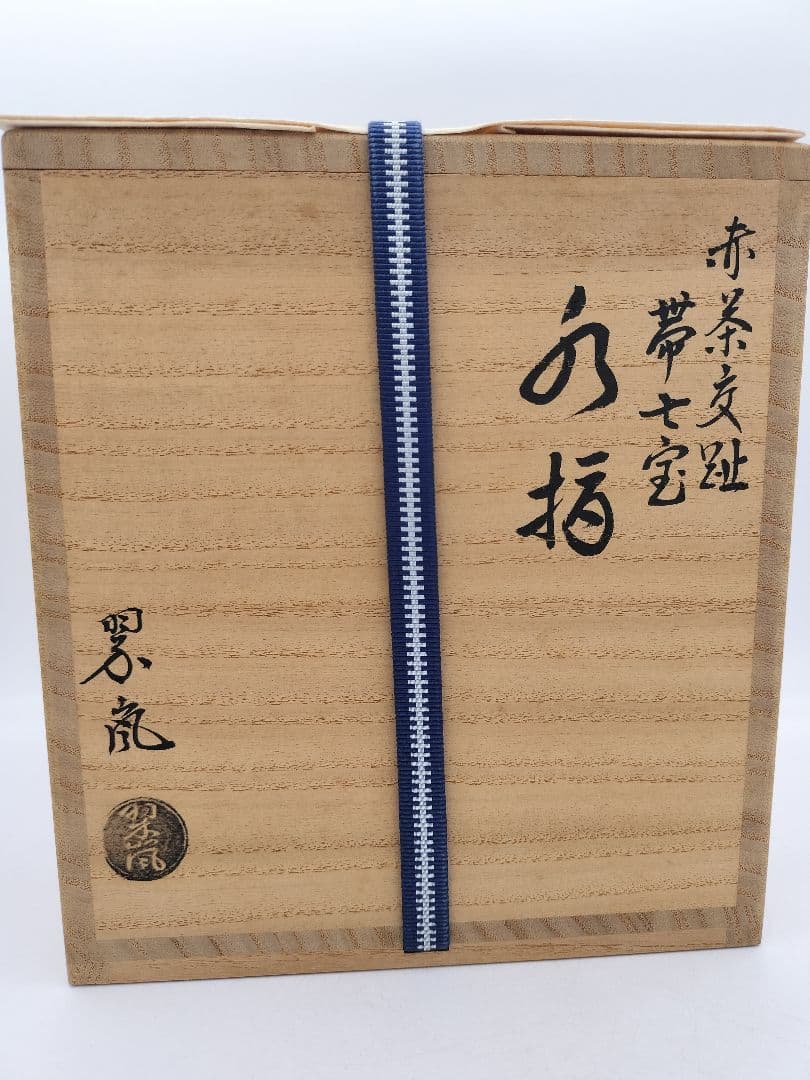 赤茶交趾
帯七宝
水指
翠嵐
翠嵐